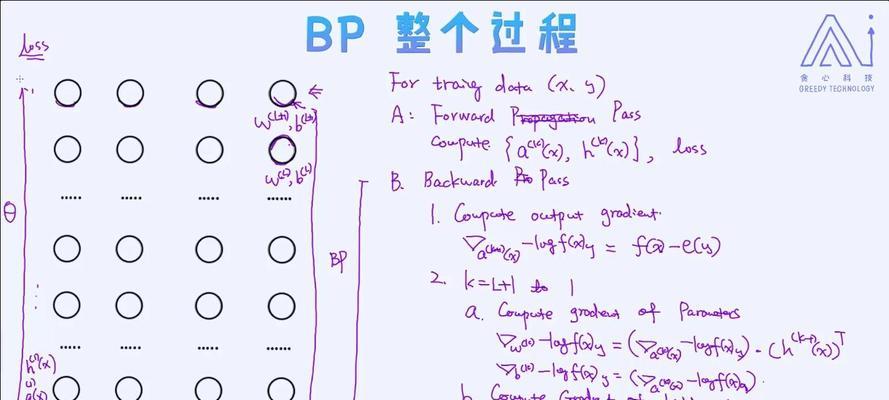 BP 整个过程
贪心科技
GREEDY TECHNOLOGY
loss
For traing data (x, y)
A: Forward Propagation Pass
Compute {a^(k)(x), h^(k)(x)}, loss
w^(L+1), b^(L+1)
w^(L), b^(L)
B. Backward Pro Pass
θ
BP
1. Compute output gradient.
∇a^(L+1)(x) -log f(x)y = f(x) - e(y)
2. k=L+1 to 1
a. Compute gradient of Parameters
∇w^(k) -log f(x)y = (∇a^(k)(x) -log f(x)y) · (h^(k-1)(x))^T
∇b^(k) -log f(x)y = (∇a^(k)(x) -log f(x)y).
h^(1)(x)
a(x)
b. Compute Gradient of